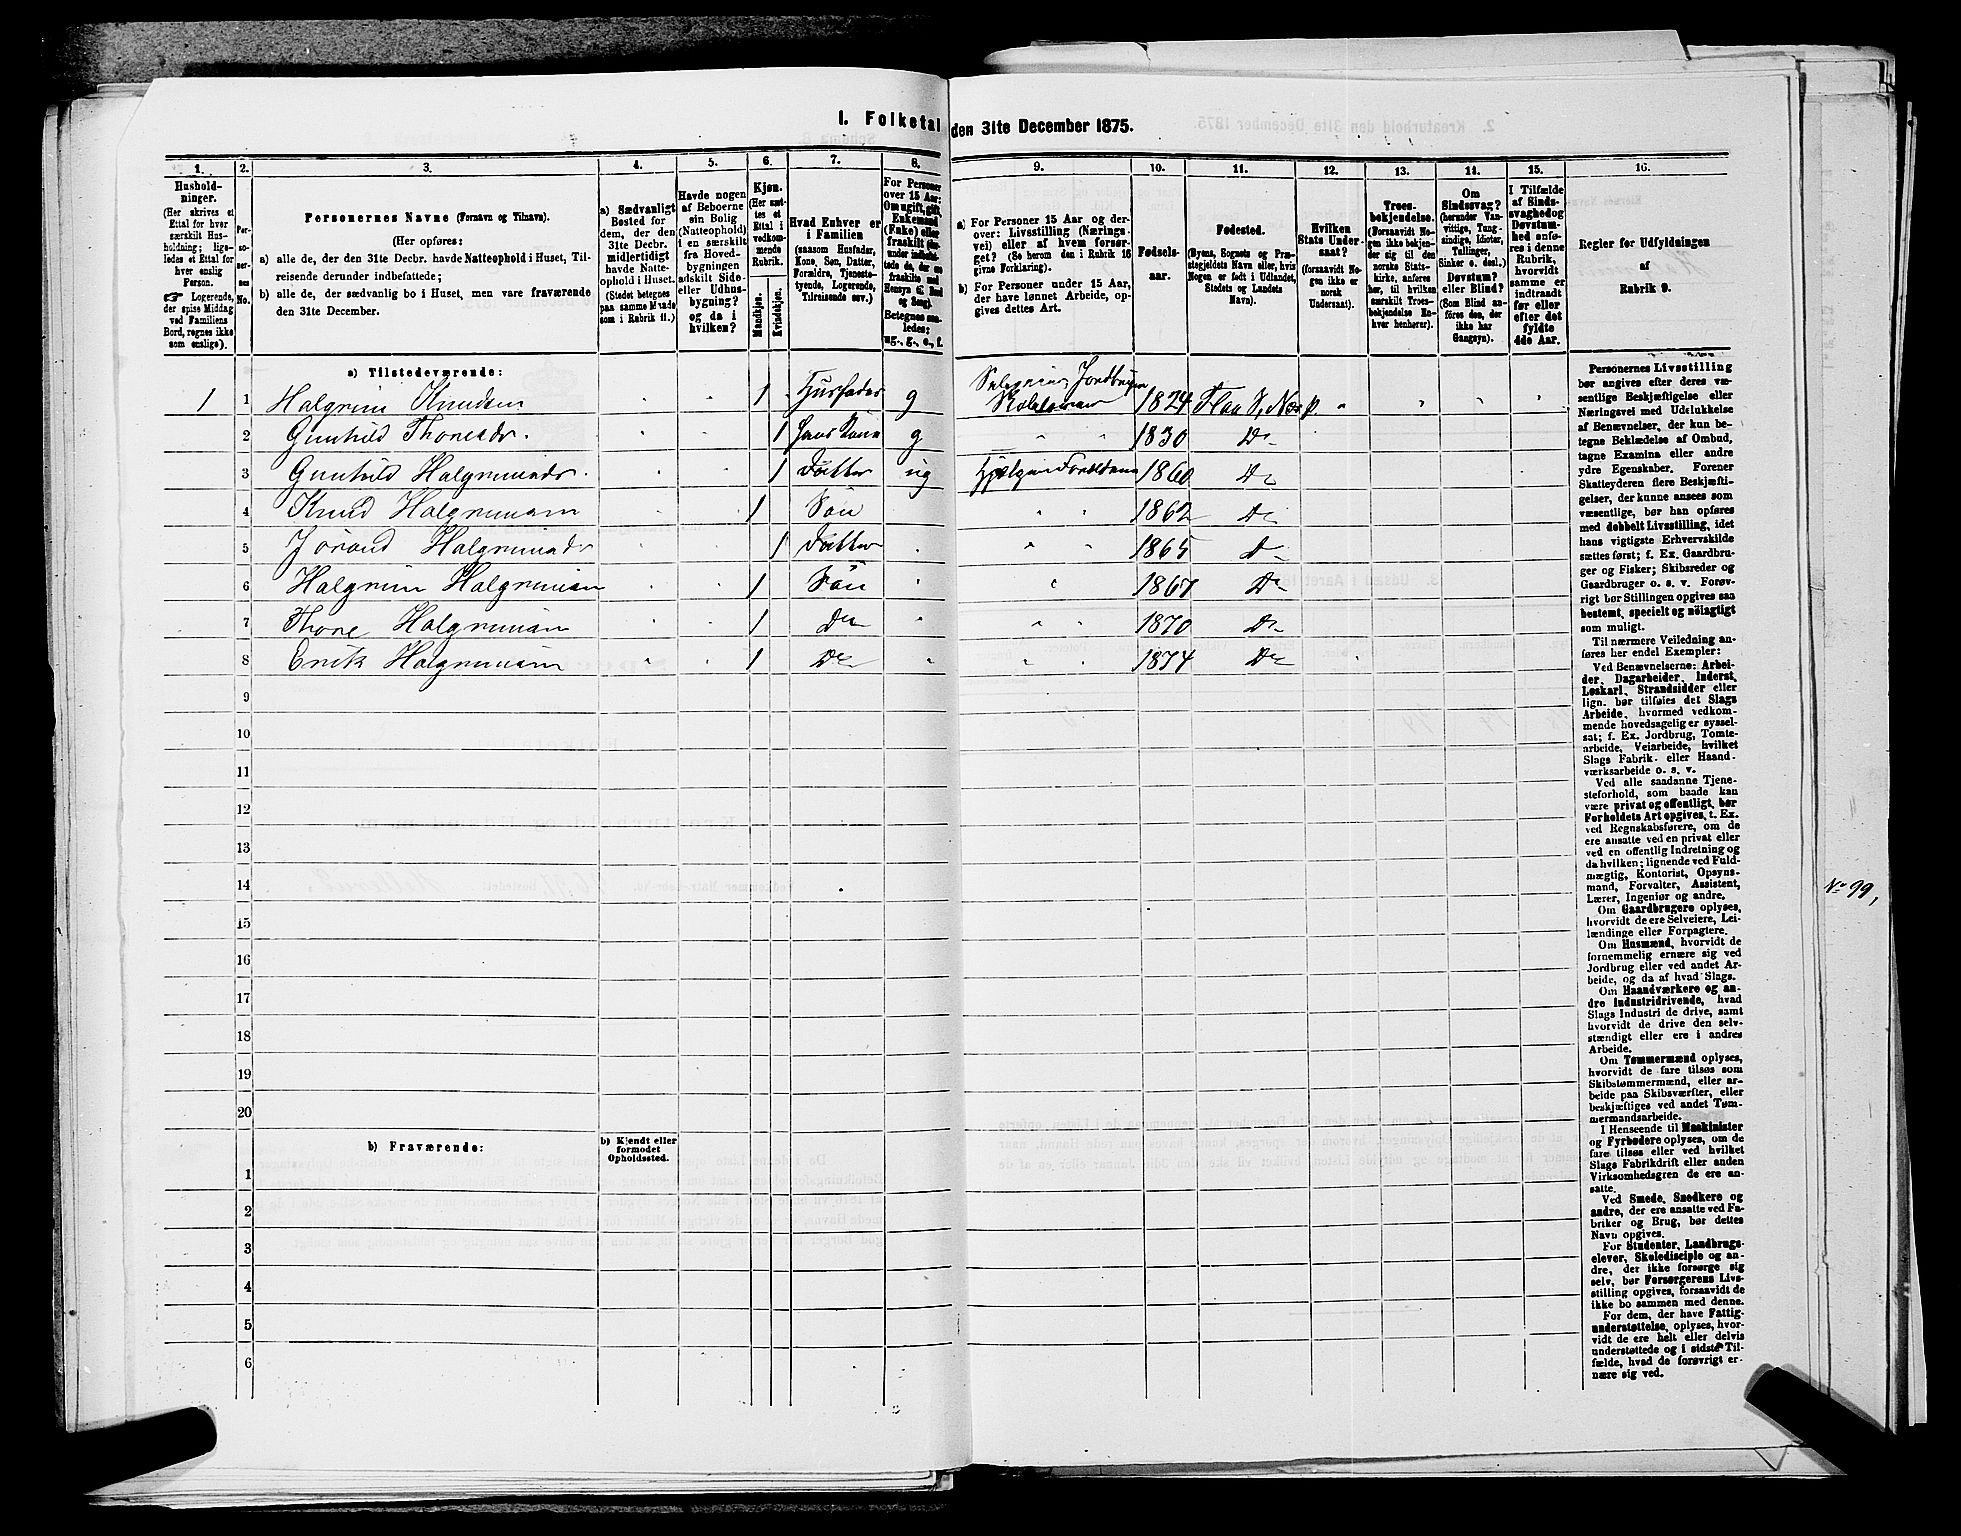 1. Folketal den 31te December 1875.
1. 2. 3. 4. 5. 6. 7. 8. 9. 10. 11. 12. 13. 14. 15. 16.
Hushold-
ninger.
(Her skrives et
Ettal for hver
særskilt Hus-
holdning; lige-
ledes et Ettal for
hver enslig
Person.
☛ Logerende,
der spise Middag
ved Familiens
Bord, regnes ikke
som enslige).
Per-
soner-
nes
No.
Personernes Navne (Fornavn og Tilnavn).
(Her opføres:
a) alle de, der den 31te Decbr. havde Natteophold i Huset, Til-
reisende derunder indbefattede;
b) alle de, der sædvanlig bo i Huset, men vare fraværende
den 31te December.
a) Sædvanligt
Bosted for
dem, der den
31te Decbr.
midlertidigt
havde Natte-
ophold i Huset.
(Stedet betegnes
paa samme Maade
som i Rubrik 11.)
Havde nogen
af Beboerne
sin Bolig
(Natteophold)
i en særskilt
fra Hoved-
bygningen
adskilt Side-
eller Udhus-
bygning?
og da i
hvilken?
Kjøn.
(Her sæt-
tes et
Ettal i
vedkom-
mende
Rubrik.
Mandkjøn.
Kvindekjøn.
Hvad Enhver er
i Familien
(saasom Husfader,
Kone, Søn, Datter,
Forældre, Tjeneste-
tyende, Logerende,
Tilreisende osv.)
For Personer
over 15 Aar:
Om ugift, gift,
Enkemand
(Enke) eller
fraskilt
Betegnes saa-
ledes:
ug., g., e., f.
a) For Personer 15 Aar og der-
over: Livsstilling (Nærings-
vei) eller af hvem forsør-
get? (Se herom den i Rubrik 16
givne Forklaring).
b) For Personer under 15 Aar,
der have lønnet Arbeide, op-
gives dettes Art.
Fødsels-
aar.
Fødested.
(Byens, Sognets og Præ-
stegjeldets Navn eller, hvis
Nogen er født i Udlandet,
Stedets og Landets
Navn).
Hvilken
Stats Under-
saat?
(forsaavidt No-
gen ikke er
norsk
Undersaat).
Troes-
bekjendelse.
(Forsaavidt No-
gen ikke bekjen-
der sig til den
norske Stats-
kirke, anføres
her, til hvilken
særskilt Troes-
bekjendelse En-
hver henhører).
Om
Sindssvag?
(herunder Van-
vittige, Tung-
sindige, Idioter,
Tullinger,
Sinker o. desl.)
Døvstum?
eller Blind?
(Som Blind an-
føres den, der
ikke har
Gangsyn).
I Tilfælde
af Sinds-
svaghed og
Døvstum-
hed anfø-
res i denne
Rubrik,
hvorvidt
samme er
indtraadt
før eller
efter det
fyldte
4de Aar.
Regler for Udfyldningen
af
Rubrik 9.
a) Tilstedeværende:
1 1 Halgrim Knudsen 1 Husfader g Selveier, Jordbruger 1824 Flaa S, Næs p.
2 Gunhild Thoresdr. 1 Hans Kone g 1830 Do
3 Gunhild Halgrimsdr. 1 Datter ug Hjelper Forældrene 1860 Do
4 Knud Halgrimsen 1 Søn 1862 Do
5 Jørand Halgrimsdr 1 Datter 1865 Do
6 Halgrim Halgrimsen 1 Søn 1867 Do
7 Thore Halgrimsen 1 Do 1870 Do
8 Erik Halgrimsen 1 Do 1874 Do
9
10
11
12
13
14
15
16
17
18
19
20
b) Fraværende:
b) Kjendt eller
formodet
Opholdssted.
1
2
3
4
5
6
Personernes Livsstilling
bør angives efter deres væ-
sentlige Beskjæftigelse eller
Næringsvei med Udelukkelse
af Benævnelser, der kun be-
tegne Beklædelse af Ombud,
tagne Examina eller andre
ydre Egenskaber. Forener
Skatteyderen flere Beskjæfti-
gelser, der kunne ansees som
væsentlige, bør han opføres
med dobbelt Livsstilling, idet
hans vigtigste Erhvervskilde
sættes først; f. Ex. Gaardbru-
ger og Fisker; Skibsreder og
Gaardbruger o. s. v. Forøv-
rigt bør Stillingen opgives saa
bestemt, specielt og nøiagtigt
som muligt.
Til nærmere Veiledning an-
føres her endel Exempler:
Ved Benævnelserne: Arbei-
der, Dagarbeider, Inderst,
Løskarl, Strandsidder eller
lign. bør tilføies det Slags
Arbeide, hvormed vedkom-
mende hovedsagelig er syssel-
sat; f. Ex. Jordbrug, Tomte-
arbeide, Veiarbeide, hvilket
Slags Fabrik- eller Haand-
værksarbeide o. s. v.
Ved alle saadanne Tjene-
steforhold, som baade kan
være privat og offentligt, bør
Forholdets Art opgives, t. Ex.
ved Regnskabsførere, om de
ere ansatte ved en privat eller
ved en offentlig Indretning og
da hvilken; lignende ved Fuld-
mægtig, Kontorist, Opsyns-
mand, Forvalter, Assistent,
Lærer, Ingeniør og andre.
Om Gaardbrugere oplyses,
hvorvidt de ere Selveiere, Lei-
lændinge eller Forpagtere.
Om Husmænd, hvorvidt de
fornemmelig ernære sig ved
Jordbrug eller ved andet Ar-
beide, og da af hvad Slags.
Om Haandværkere og an-
dre Industridrivende, hvad
Slags Industri de drive, samt
hvorvidt de drive den selv-
stændigt eller ere i andres
Arbeide.
Om Tømmermænd oplyses,
hvorvidt de fare tilsøs som
Skibstømmermænd, eller ar-
beide paa Skibsværfter, eller
beskjæftiges ved andet Tøm-
mermandsarbeide.
I Henseende til Maskinister
og Fyrbødere oplyses, om de
fare tilsøs eller ved hvilket
Slags Fabrikdrift eller anden
Virksomhedsgren de ere an-
satte.
Ved Smede, Snedkere og
andre, der ere ansatte ved Fa-
briker og Brug, bør dettes
Navn opgives.
For Studenter, Landbrugs-
elever, Skoledisciple og an-
dre, der ikke forsørge sig
selv, bør Forsørgerens Livs-
stilling opgives, forsaavidt de
ikke bo sammen med denne.
For dem, der have Fattig-
understøttelse, oplyses, hvor-
vidt de ere helt eller delvis
understøttede og i sidste Til-
fælde, hvad de forøvrigt er-
nære sig ved.
No 99,